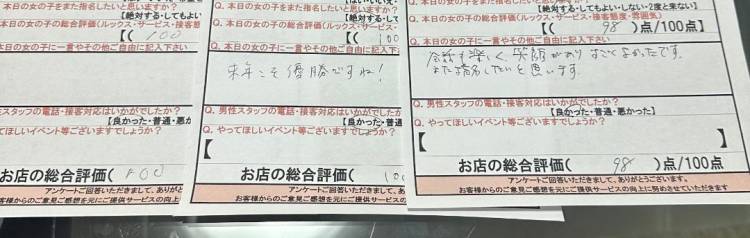 Q. 本日の女の子をまた指名したいと思いますか?
【絶対する・してもよい
Q. 本日の女の子の総合評価(ルックス・サービス・接客
【( 100
Q. 本日の女の子に一言やその他ご自由に記入下さい
男性スタッフの電話・接客対応はいかがでしたか?
【良かった・普通・悪か
やってほしいイベント等ございますでしょうか?
お店の総合評価( 100
アンケートご回答いただきまして、ありがと
お客様からのご意見ご感想を元にご提供サービスの向上
Q. 本日の女の子の総合評価(ルックス・サー
【( 100
Q. 本日の女の子に一言やその他ご自由に記入
来年こそ優勝ですね!
Q. 男性スタッフの電話・接客対応はいかがでしたか?
【良かった・普通
Q. やってほしいイベント等ございますでしょうか?
【
お店の総合評価( 100
アンケートご回答いただきまして、
お客様からのご意見ご感想を元にご提供サービスの
Q. 本日の女の子をまた指名したいと思いますか?
【絶対する・してもよい・しない・2度と来ない】
Q. 本日の女の子の総合評価(ルックス・サービス・接客態度・雰囲気)
【( 98 )点/100点
Q. 本日の女の子に一言やその他ご自由に記入下さい
会話も楽しく、笑顔があり すごくよかったです。
また指名したいと思います。
Q. 男性スタッフの電話・接客対応はいかがでしたか?
【良かった・普通・悪かった】
Q. やってほしいイベント等ございますでしょうか?
【 】
お店の総合評価( 98 )点/100点
アンケートご回答いただきまして、ありがとうございます。
お客様からのご意見ご感想を元にご提供サービスの向上に努めさせていただきます